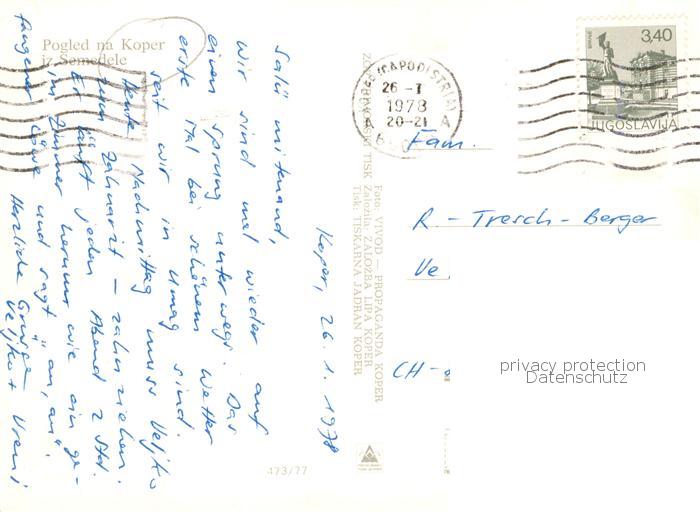 Pogled na Koper
iz Semedele
Koper, 26. 1. 1978
Salü mitenand,
Wir sind mal wieder auf
einen Sprung unterwegs. Das
erste Mal bei schönem Wetter
seit wir in Umag sind.
Heute Nachmittag muss Veljko
zum Zahnarzt – zahnziehen.
Er läuft jeden Abend 2 Std.
im Zimmer herum wie ein ge-
fangener Löwe und sagt "au, au".
Herzliche Grüsse
Veljko + Vreni
Foto: VIVOD — PROPAGANDA KOPER
Založila: ZALOŽBA LIPA KOPER
Tisk: TISKARNA JADRAN KOPER
473/77
KOPER-CAPODISTRIA
26 -1
1978
20-21
A A
3,40
JUGOSLAVIJA
Fam.
R - Tresch - Berger
Ve
CH -
privacy protection
Datenschutz